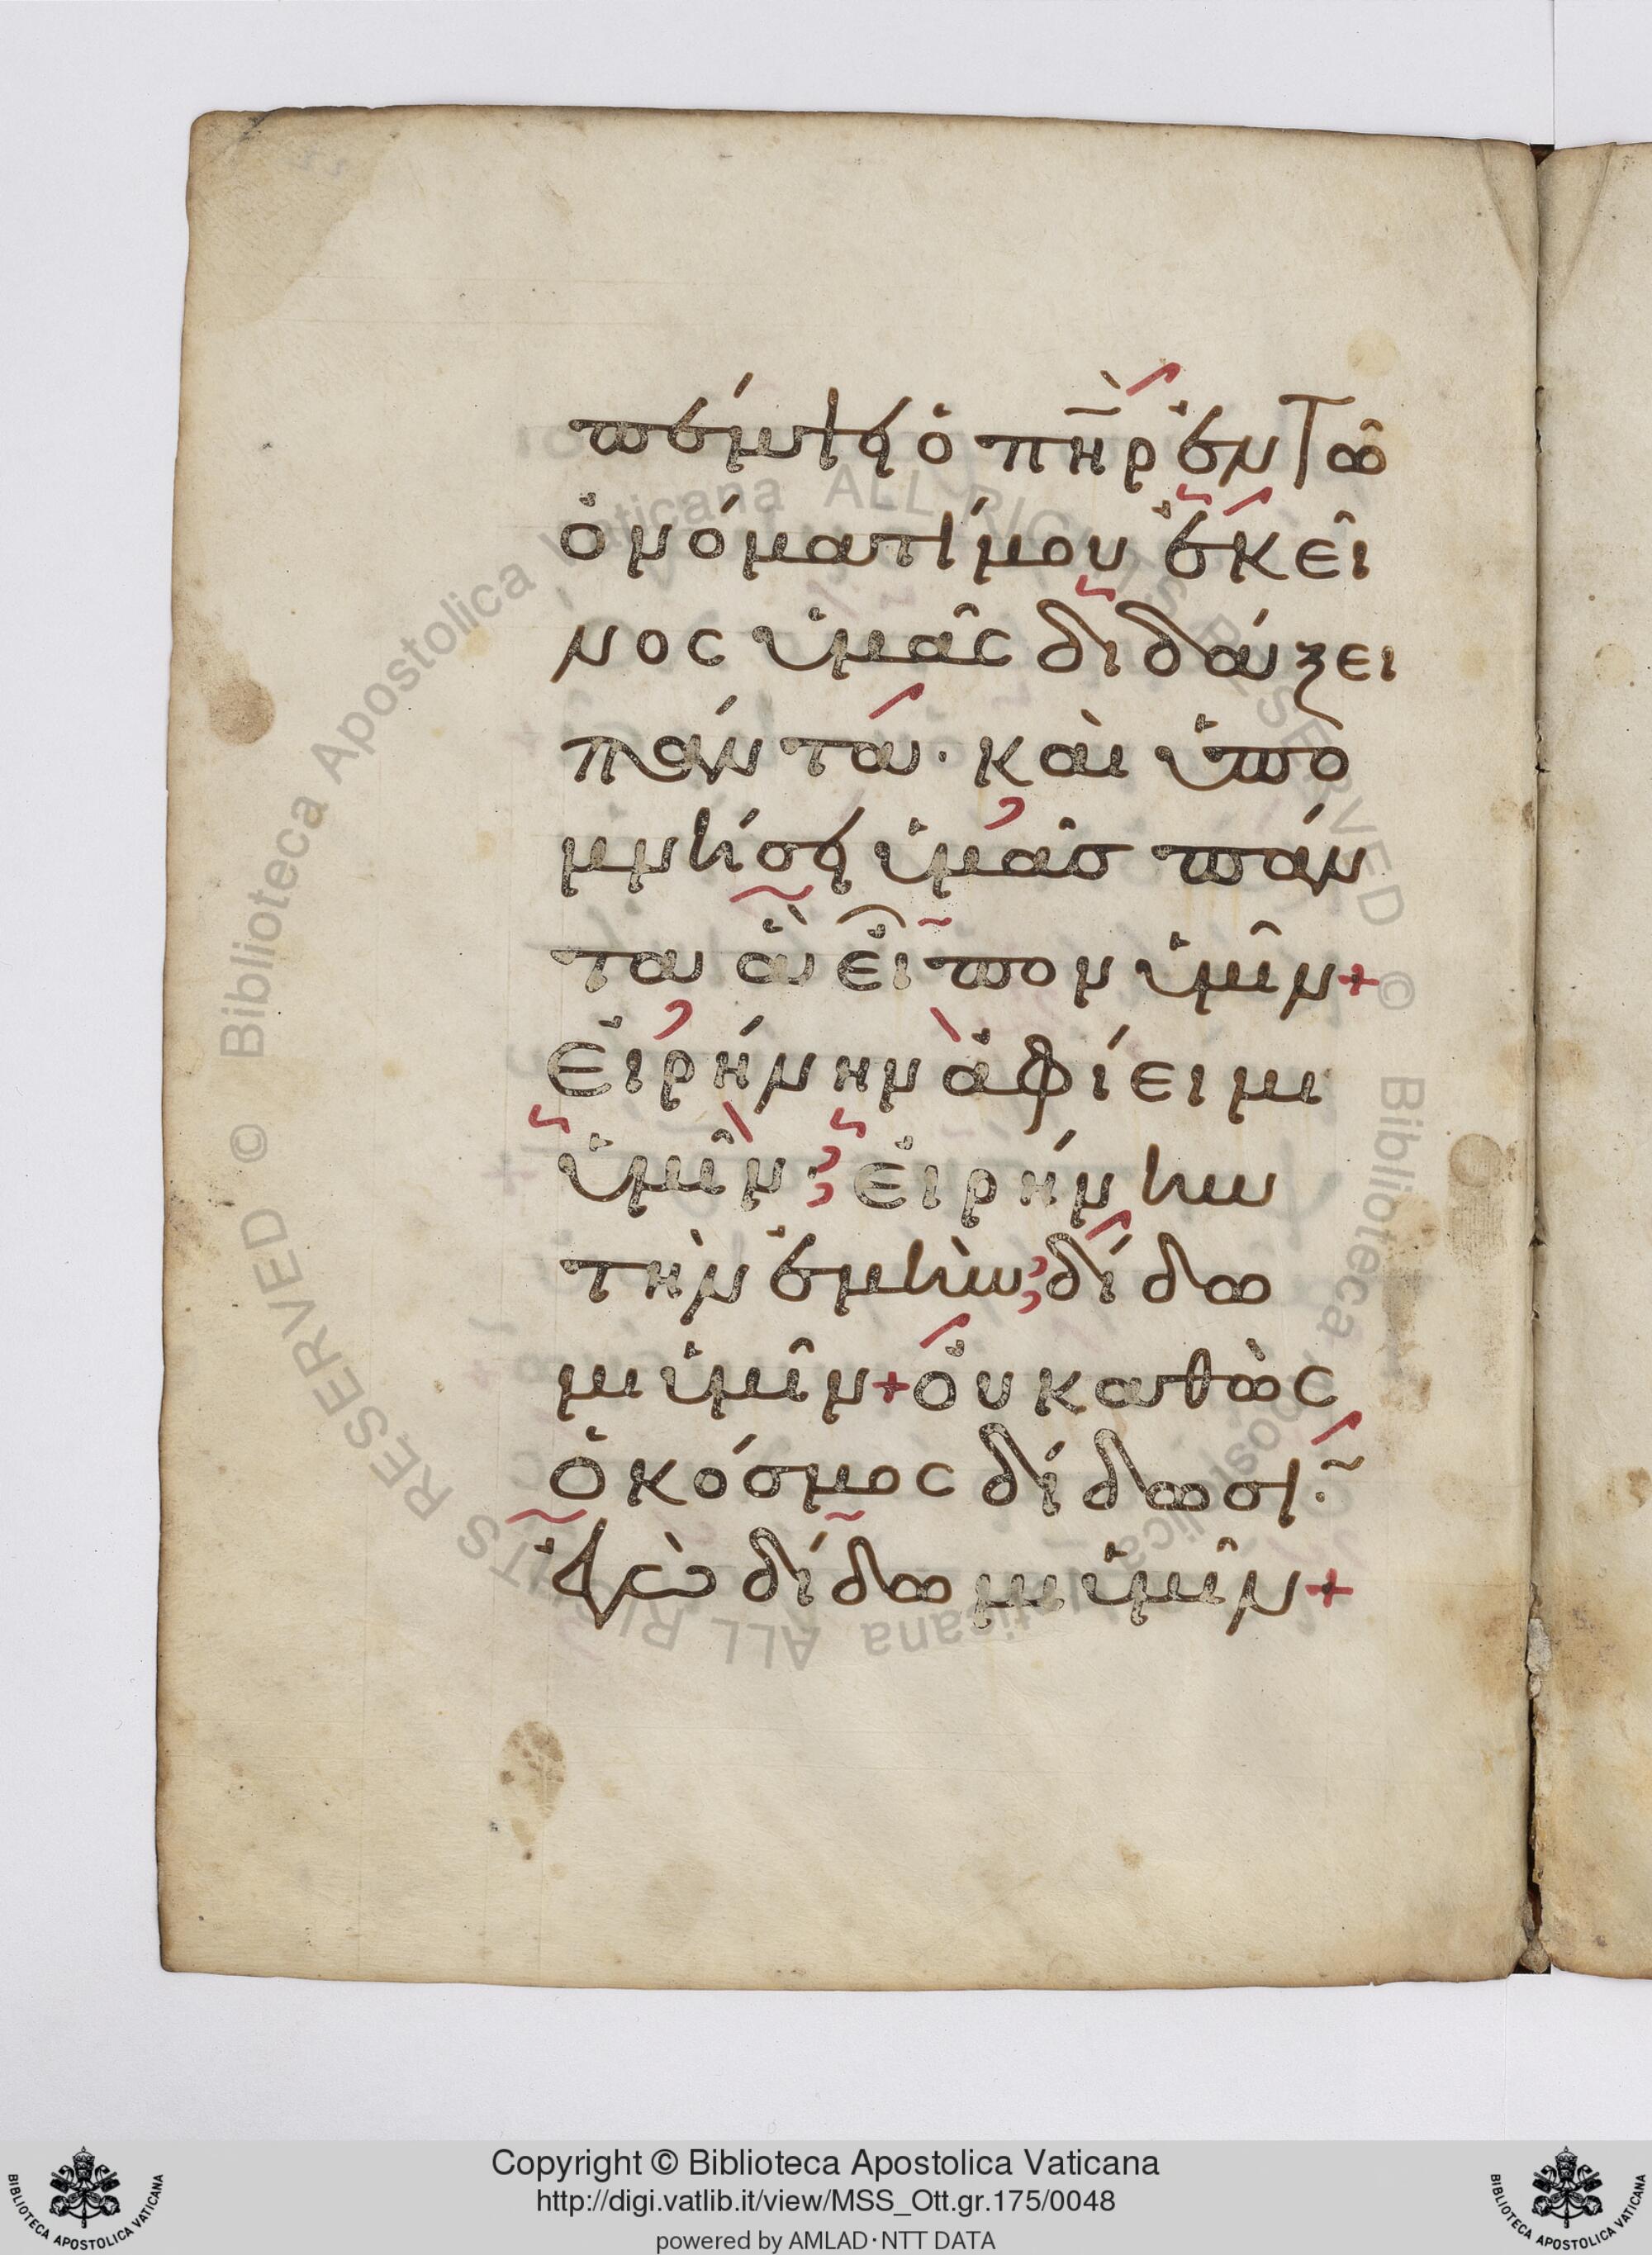 πέμψει ὁ πη̅ρ ἐν τῶ
ὀνόματί μου ἐκεῖ
νος ὑμᾶς διδάξει
πάντα· καὶ ὑπο
μνήσει ὑμᾶσ πάν
τα ἃ εἶπον ὑμῖν+
εἰρήνην ἀφίειμι
ὑμῖν· εἰρήνην
τὴν ἐμὴν δίδω
μι ὑμῖν+ οὐ καθὼς
ὁ κόσμος δίδωσι·
ἐγὼ δίδωμι ὑμῖν+
© Biblioteca Apostolica Vaticana ALL RIGHTS RESERVED
© Biblioteca Apostolica Vaticana ALL RIGHTS RESERVED
Copyright © Biblioteca Apostolica Vaticana
http://digi.vatlib.it/view/MSS_Ott.gr.175/0048
powered by AMLAD·NTT DATA
BIBLIOTECA APOSTOLICA VATICANA
BIBLIOTECA APOSTOLICA VATICANA